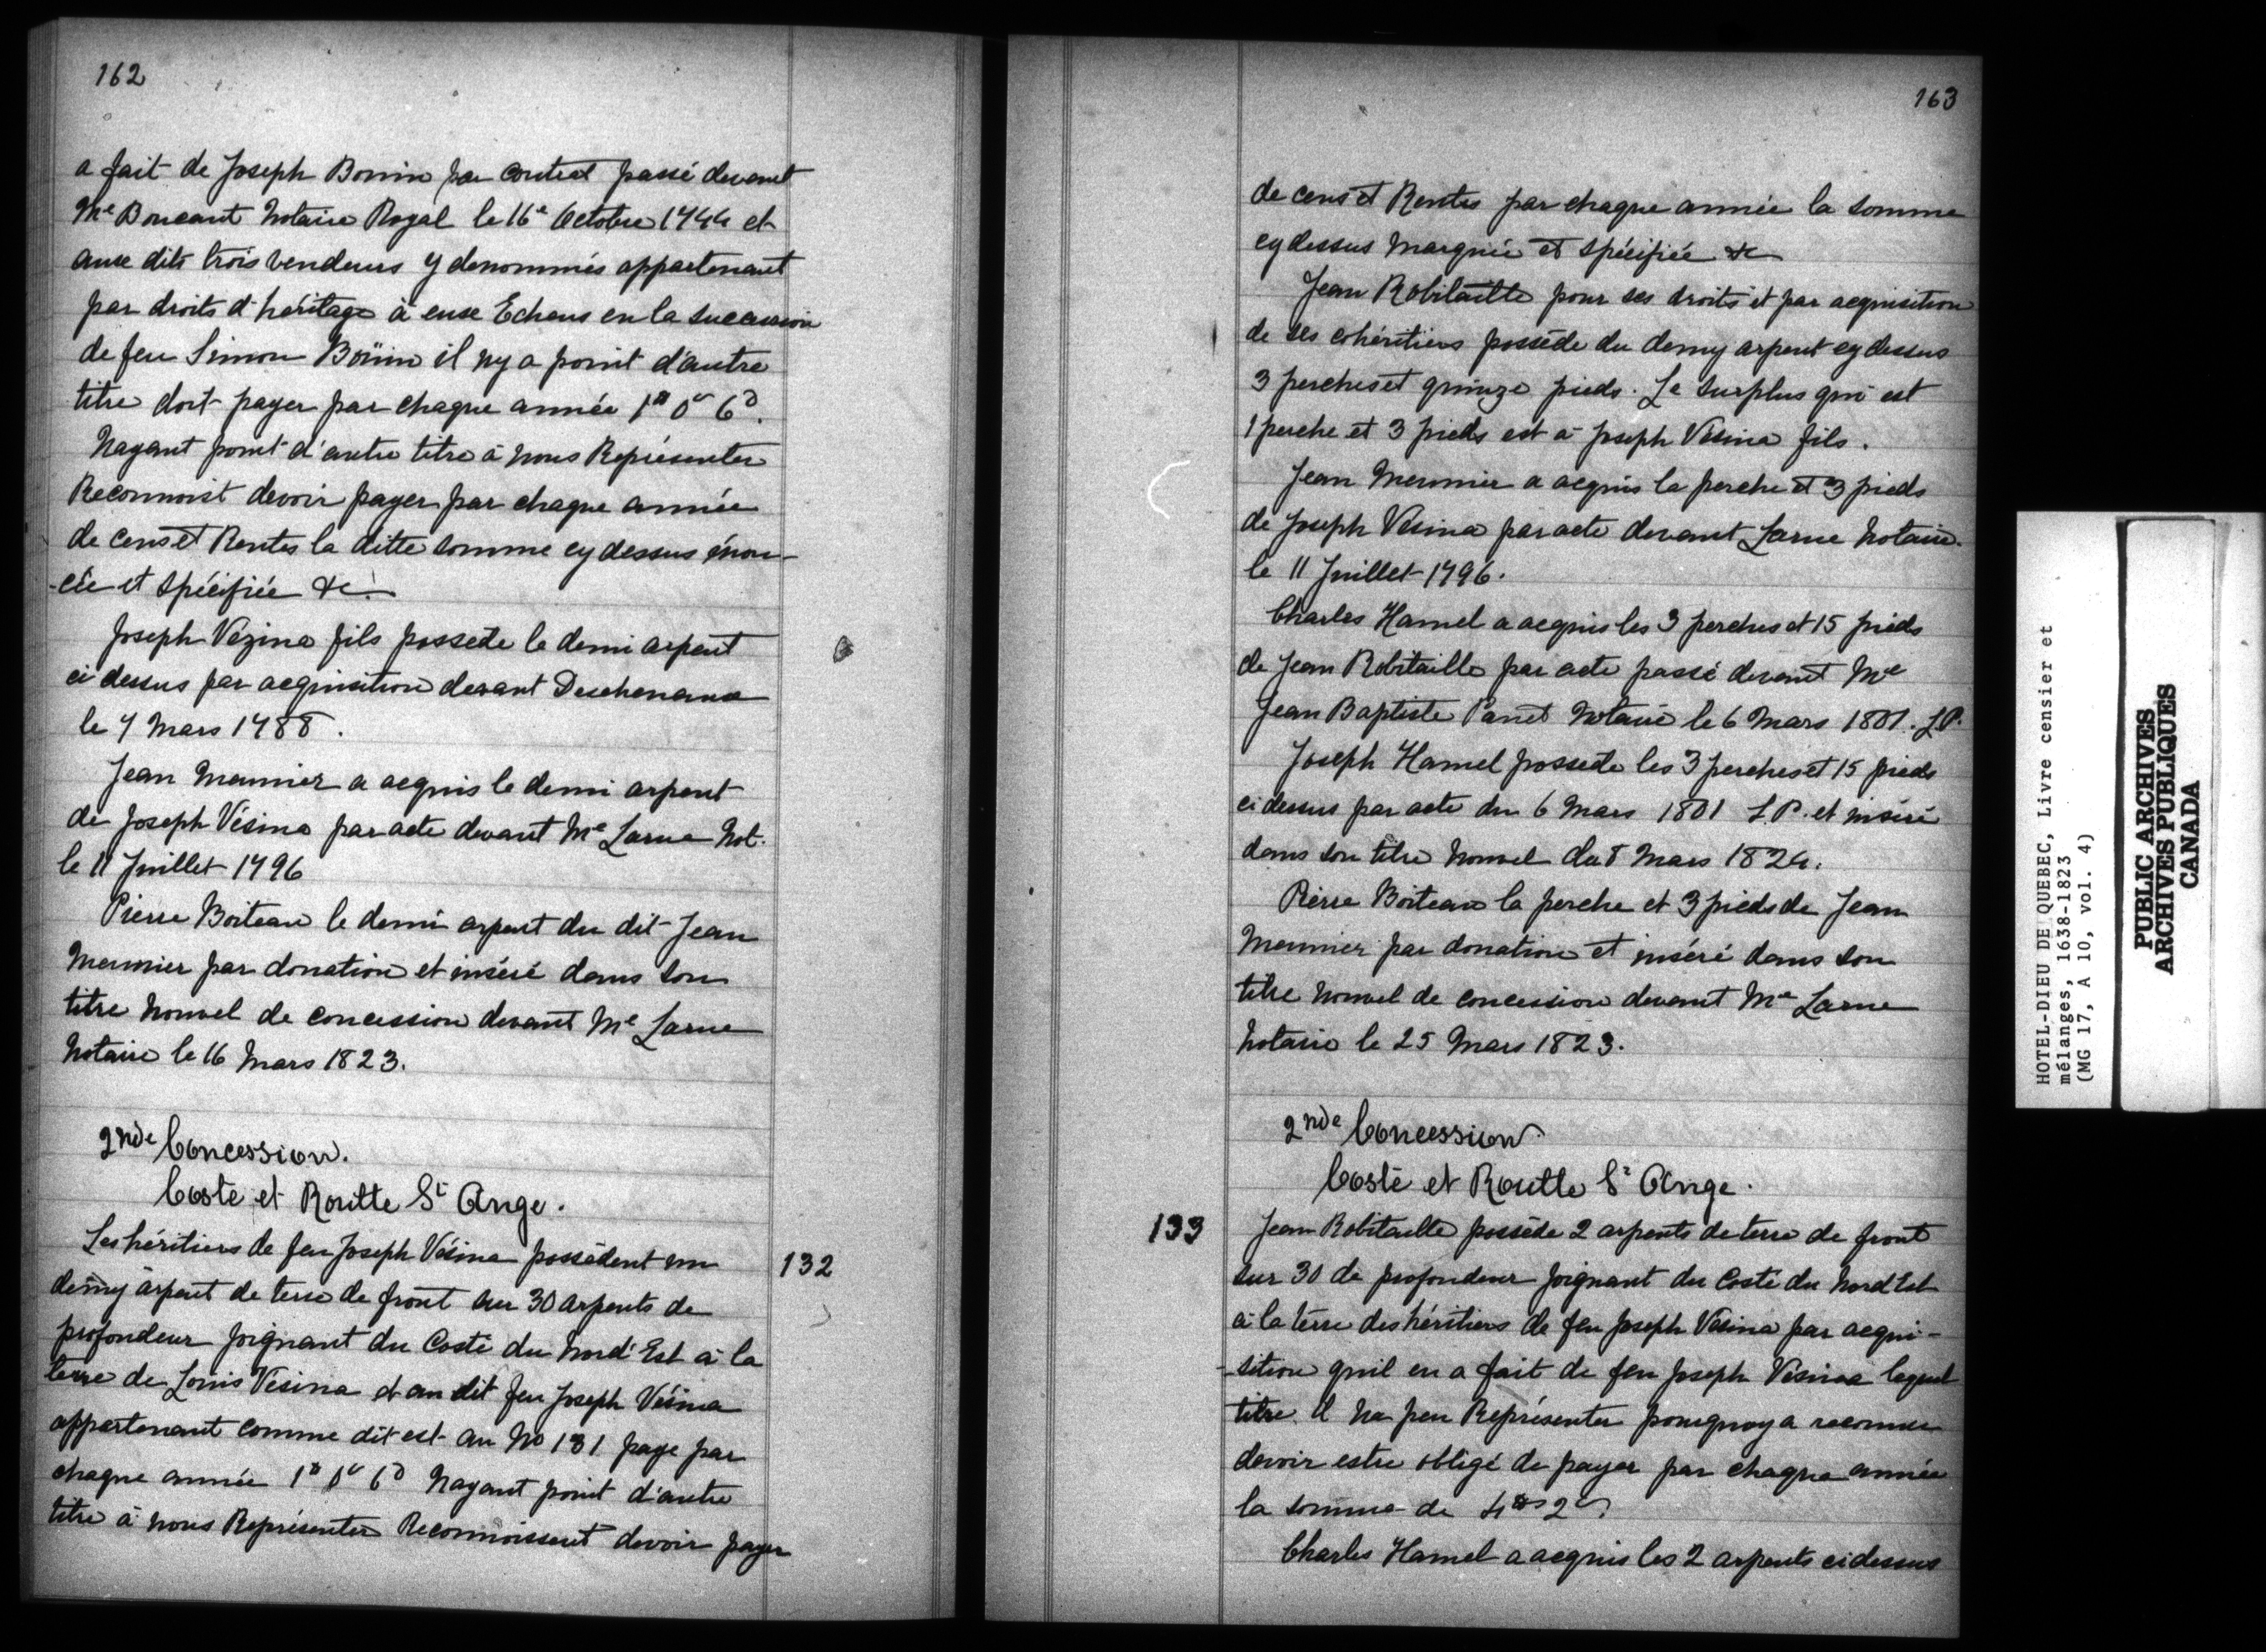 162
a fait de Joseph Bonin par contrat passé devant
Me Boucaut Notaire Royal le 16e Octobre 1744 et
aux dits trois vendeurs y denommés appartenant
par droits d'héritage à eux Echeus en la succession
de feu Simon Boüin il ny a point d'autre
titre doit payer par chaque année 1# 0s 6d.
Nayant point d'autre titre à nous Représenter
Reconnoist devoir payer par chaque année
de cens et Rentes la ditte somme cy dessus énon-
-cée et spécifiée &c.
Joseph Vézina fils possede le demi arpent
ci dessus par acquisition devant Deschenaux
le 7 Mars 1788.
Jean Meunier a acquis le demi arpent
de Joseph Vésina par acte devant Me Larue Not.
le 11 Juillet 1796
Pierre Boiteau le demi arpent du dit Jean
Meunier par donation et inséré dans son
titre Nouvel de concession devant Me Larue
Notaire le 16 Mars 1823.
2nde Concession.
Coste et Routte St Ange.
Les héritiers de feu Joseph Vésina possèdent un
132
demy arpent de terre de front sur 30 arpents de
profondeur joignant du Costé du Nord Est à la
terre de Louis Vesina et au dit feu Joseph Vésina
appartenant comme dit est au No 131 paye par
chaque année 1# 0s 6d Nayant point d'autre
titre à nous Représenter Reconnoissent devoir payer
163
de cens et Rentes par chaque année la somme
cy dessus Margnée et spécifiée &c
Jean Robitaille pour ses droits et par acquisition
de ses cohéritiers possède du demy arpent cy dessus
3 perches et quinze pieds. Le surplus qui est
1 perche et 3 pieds est à Joseph Vésina fils.
Jean Meunier a acquis la perche et 3 pieds
de Joseph Vésina par acte devant Larue Notaire.
le 11 Juillet 1796.
Charles Hamel a acquis les 3 perches et 15 pieds
de Jean Robitaille par acte passé devant Me
Jean Baptiste Panet Notaire le 6 Mars 1801. L.P.
Joseph Hamel possede les 3 perches et 15 pieds
ci dessus par acte du 6 Mars 1801 L.P. et inséré
dans son titre Nouvel du 8 Mars 1824.
Pierre Boiteau la perche et 3 pieds de Jean
Meunier par donation et inséré dans son
titre Nouvel de concession devant Me Larue
Notaire le 25 Mars 1823.
2nde Concession
Costé et Routte St Ange.
133
Jean Robitaille possède 2 arpents de terre de front
sur 30 de profondeur joignant du Costé du Nord Est
à la terre des héritiers de feu Joseph Vésina par acqui-
-sition quil en a fait de feu Joseph Vésina lequel
titre il na peu Représenter pourquoy a reconnu
devoir estre obligé de payer par chaque année
la somme de 4# 2s
Charles Hamel a acquis les 2 arpents ci dessus
HOTEL-DIEU DE QUEBEC, Livre censier et
mélanges, 1638-1823
(MG 17, A 10, vol. 4)
PUBLIC ARCHIVES
ARCHIVES PUBLIQUES
CANADA